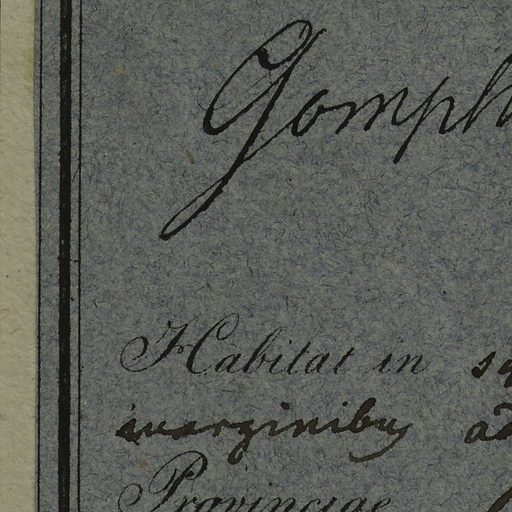 Gomph
Habitat in
marginibus
Provinciae